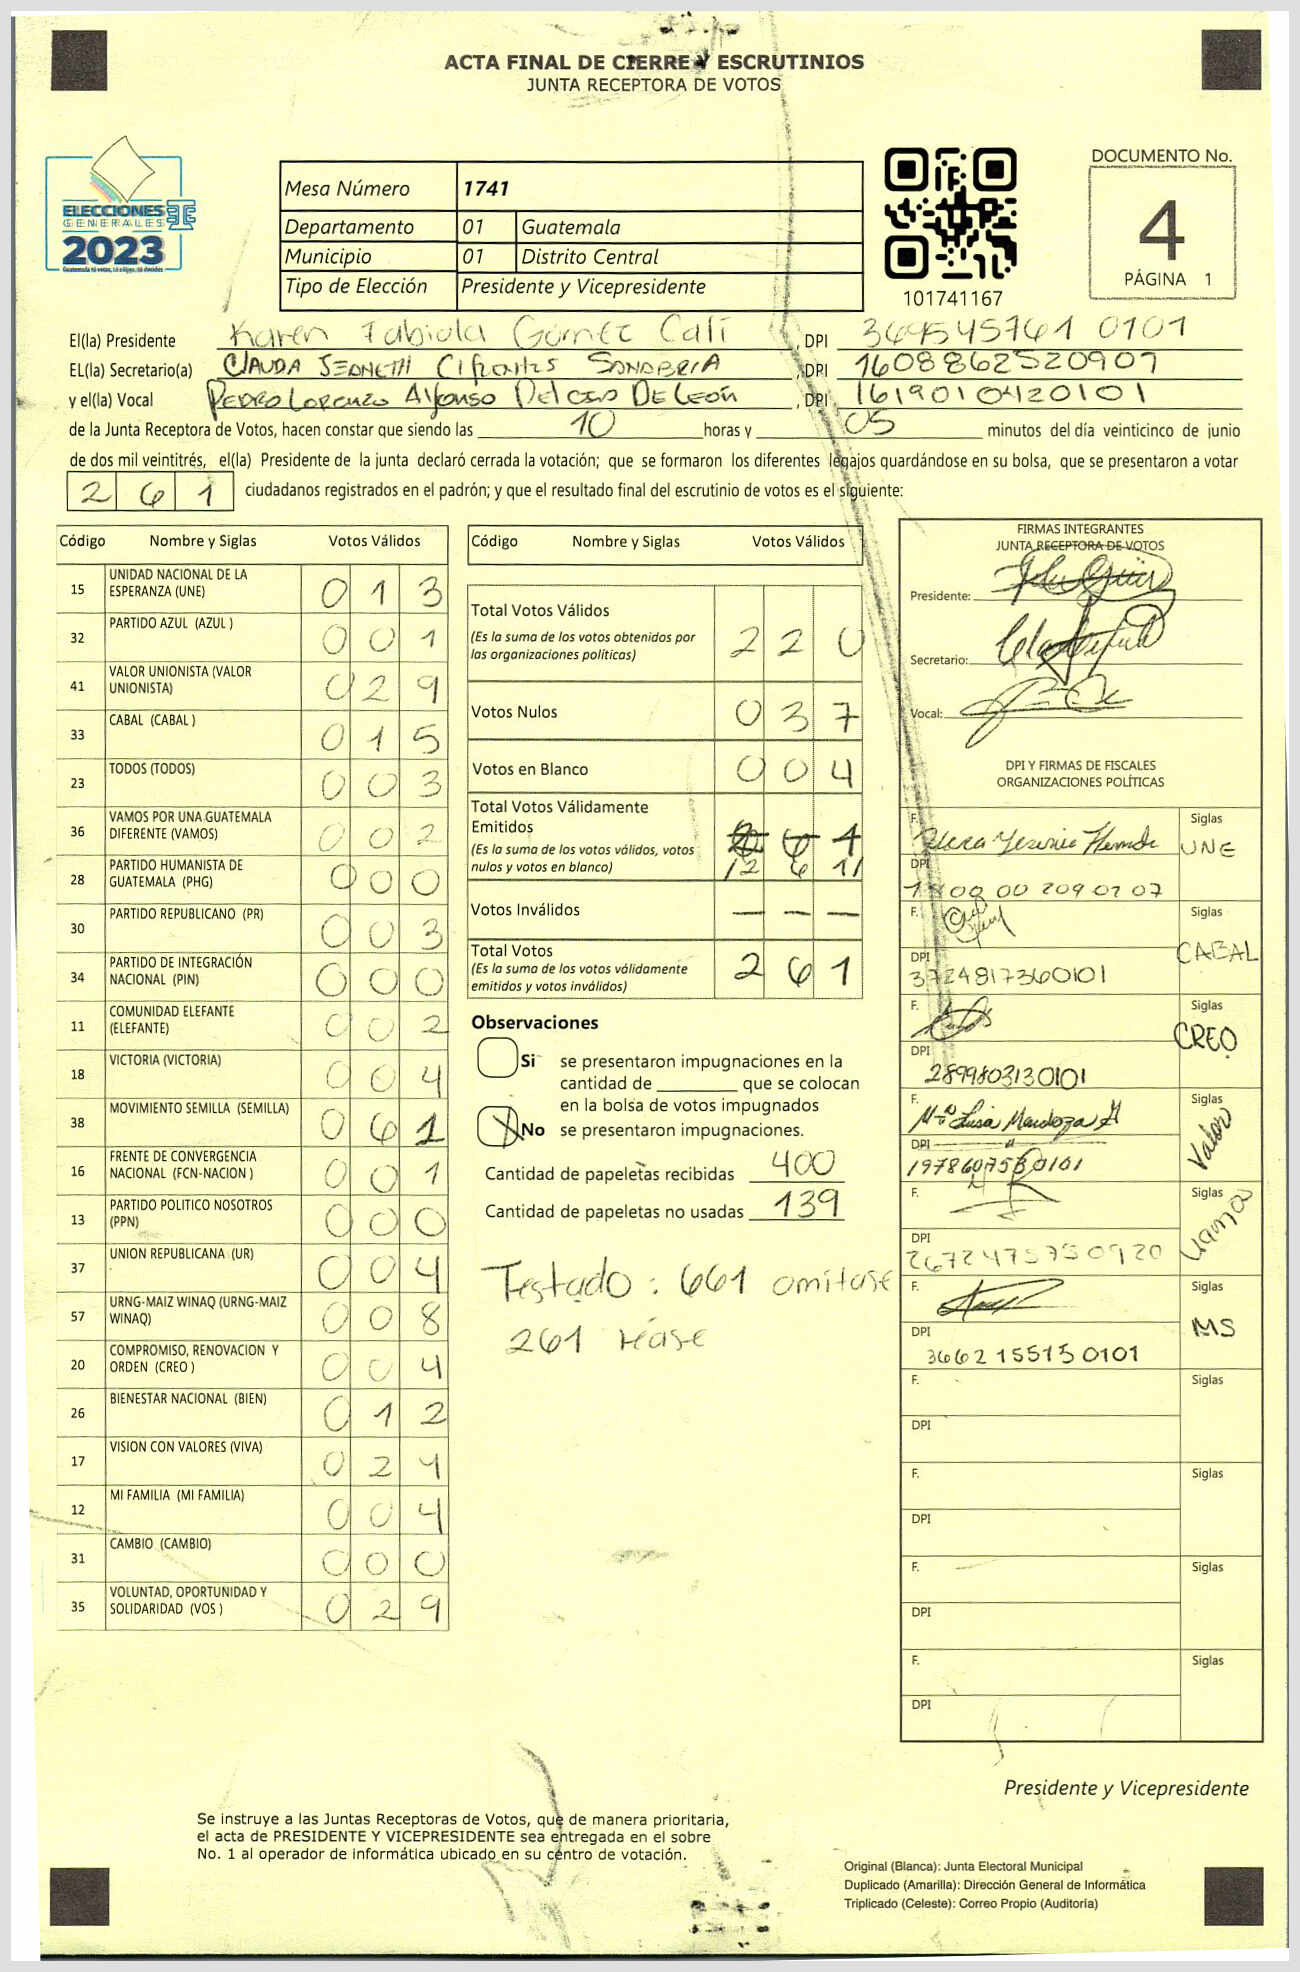 ACTA FINAL DE CIERRE Y ESCRUTINIOS
JUNTA RECEPTORA DE VOTOS
ELECCIONES
GENERALES
2023
Mesa Número 1741
Departamento 01 Guatemala
Municipio 01 Distrito Central
Tipo de Elección Presidente y Vicepresidente
101741167
DOCUMENTO No.
4
PÁGINA 1
El(la) Presidente Karen Fabiola Gómez Calí, DPI 369545761 0101
EL(la) Secretario(a) CLAUDA JEANETH Cifuentes SANABRIA, DPI 1608862520907
y el(la) Vocal PEDRO LORENZO Alfonso Del Cid DE León, DPI 1619010420101
de la Junta Receptora de Votos, hacen constar que siendo las 10 horas y 05 minutos del día veinticinco de junio
de dos mil veintitrés, el(la) Presidente de la junta declaró cerrada la votación; que se formaron los diferentes legajos guardándose en su bolsa, que se presentaron a votar
261 ciudadanos registrados en el padrón; y que el resultado final del escrutinio de votos es el siguiente:
Código Nombre y Siglas Votos Válidos
15 UNIDAD NACIONAL DE LA ESPERANZA (UNE) 013
32 PARTIDO AZUL (AZUL ) 001
41 VALOR UNIONISTA (VALOR UNIONISTA) 029
33 CABAL (CABAL ) 015
23 TODOS (TODOS) 003
36 VAMOS POR UNA GUATEMALA DIFERENTE (VAMOS) 002
28 PARTIDO HUMANISTA DE GUATEMALA (PHG) 000
30 PARTIDO REPUBLICANO (PR) 003
34 PARTIDO DE INTEGRACIÓN NACIONAL (PIN) 000
11 COMUNIDAD ELEFANTE (ELEFANTE) 002
18 VICTORIA (VICTORIA) 004
38 MOVIMIENTO SEMILLA (SEMILLA) 061
16 FRENTE DE CONVERGENCIA NACIONAL (FCN-NACION ) 001
13 PARTIDO POLITICO NOSOTROS (PPN) 000
37 UNION REPUBLICANA (UR) 004
57 URNG-MAIZ WINAQ (URNG-MAIZ WINAQ) 008
20 COMPROMISO, RENOVACION Y ORDEN (CREO ) 004
26 BIENESTAR NACIONAL (BIEN) 012
17 VISION CON VALORES (VIVA) 024
12 MI FAMILIA (MI FAMILIA) 004
31 CAMBIO (CAMBIO) 000
35 VOLUNTAD, OPORTUNIDAD Y SOLIDARIDAD (VOS ) 029
Código Nombre y Siglas Votos Válidos
Total Votos Válidos 220
(Es la suma de los votos obtenidos por
las organizaciones políticas)
Votos Nulos 037
Votos en Blanco 004
Total Votos Válidamente
Emitidos
(Es la suma de los votos válidos, votos
nulos y votos en blanco) 261
Votos Inválidos — — —
Total Votos 261
(Es la suma de los votos válidamente
emitidos y votos inválidos)
Observaciones
Si se presentaron impugnaciones en la
cantidad de ________ que se colocan
en la bolsa de votos impugnados
X No se presentaron impugnaciones.
Cantidad de papeletas recibidas 400
Cantidad de papeletas no usadas 139
Testado: 661 omitase
261 léase
FIRMAS INTEGRANTES
JUNTA RECEPTORA DE VOTOS
Presidente:
Secretario:
Vocal:
DPI Y FIRMAS DE FISCALES
ORGANIZACIONES POLÍTICAS
F. Siglas UNE
DPI
F. Siglas CABAL
DPI 3724817360101
F. Siglas CREO
DPI 2899803130101
F. Mª Luisa Mendoza Siglas Valor
DPI
F. Siglas Vamos
DPI 2672475750920
F. Siglas MS
DPI 3662155150101
F. Siglas
DPI
F. Siglas
DPI
F. Siglas
DPI
F. Siglas
DPI
Presidente y Vicepresidente
Se instruye a las Juntas Receptoras de Votos, que de manera prioritaria,
el acta de PRESIDENTE Y VICEPRESIDENTE sea entregada en el sobre
No. 1 al operador de informática ubicado en su centro de votación.
Original (Blanca): Junta Electoral Municipal
Duplicado (Amarilla): Dirección General de Informática
Triplicado (Celeste): Correo Propio (Auditoría)